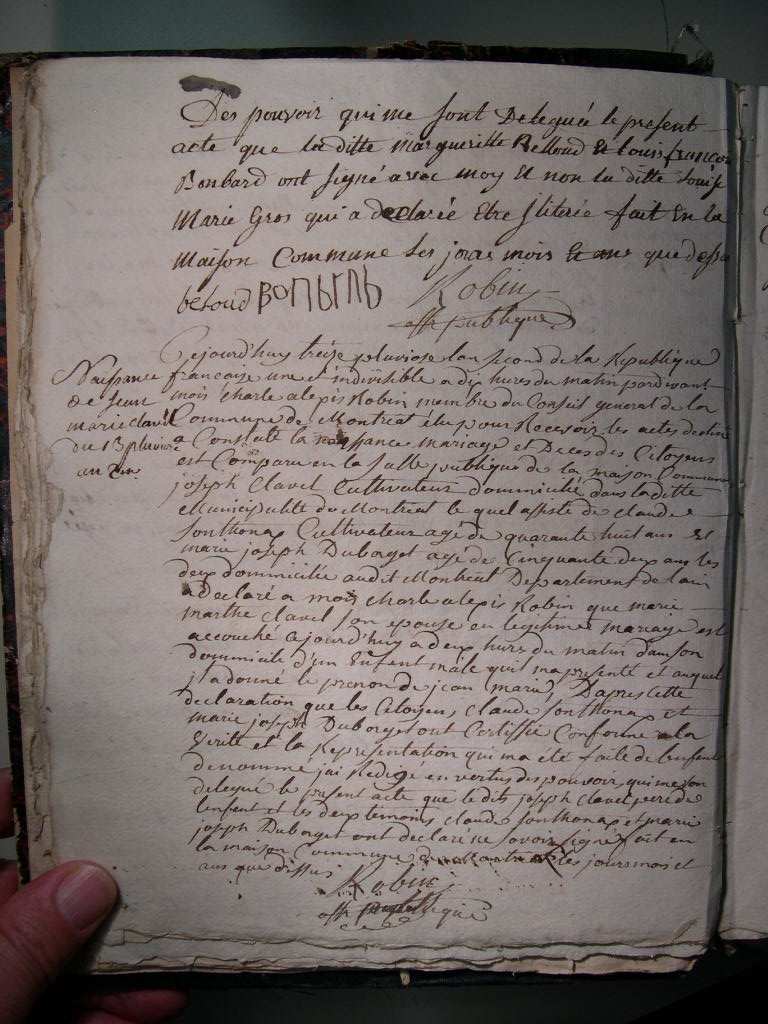 Des pouvoir qui me sont Deleguée le present
acte que la ditte margueritte Belloud Et louis françois
Bonbard ont signé avec moy Et non la ditte Louise
Marie Gros qui a declarée Etre Iliterée fait En la
Maison Commune les jours mois Et ans que dessu
beloud
Robin
off publique
Cejourd'huy treize pluviose l'an second de la Republique
francoise une et indivisible a dix hures du matin pardevant
mois charle alexis Robin membre du Conseil general de la
Commune de Montreal élu pour Recevoir les actes destiné
a Constaté la naissance mariage et Deces des Citoyens
est Comparu en la salle publique de la maison Commune
joseph Clavel Cultivateur dommicilié dans la ditte
Municipalité du Montreal le quel assisté de Claude
Sonthonax Cultivateur agé de quarante huit ans et
marie joseph Duborget agé de Cinquante deux ans les
deux dommicilié audit Montreal Departement de lain
a Declaré a mois charle alexis Robin que marie
marthe clavel son epouse en legitime mariage est
accouché cejourd'huy a deux hures du matin dans son
dommicile d'un Enfent male quil ma presenté et auquel
il a donné le prenon de jean marie, D'apres cette
declaration que les Citoyens Claude Sonthonax et
marie joseph Duborget ont Certiffié Conforme a la
Verité et la Representation qui ma eté faite de lenfent
denommé jai Redigé en vertus des pouvoir qui me son
delegué le present acte que ledits joseph Clavel pere de
lenfent et les deux temoins Claude Sonthonax et marie
joseph Duborget ont declaré ne savoir signé fait en
la maison Commune les jours mois et
ans que dessus
Robin
off publique
Naissance
de jean
marie clavel
du 13 pluviose
an 2